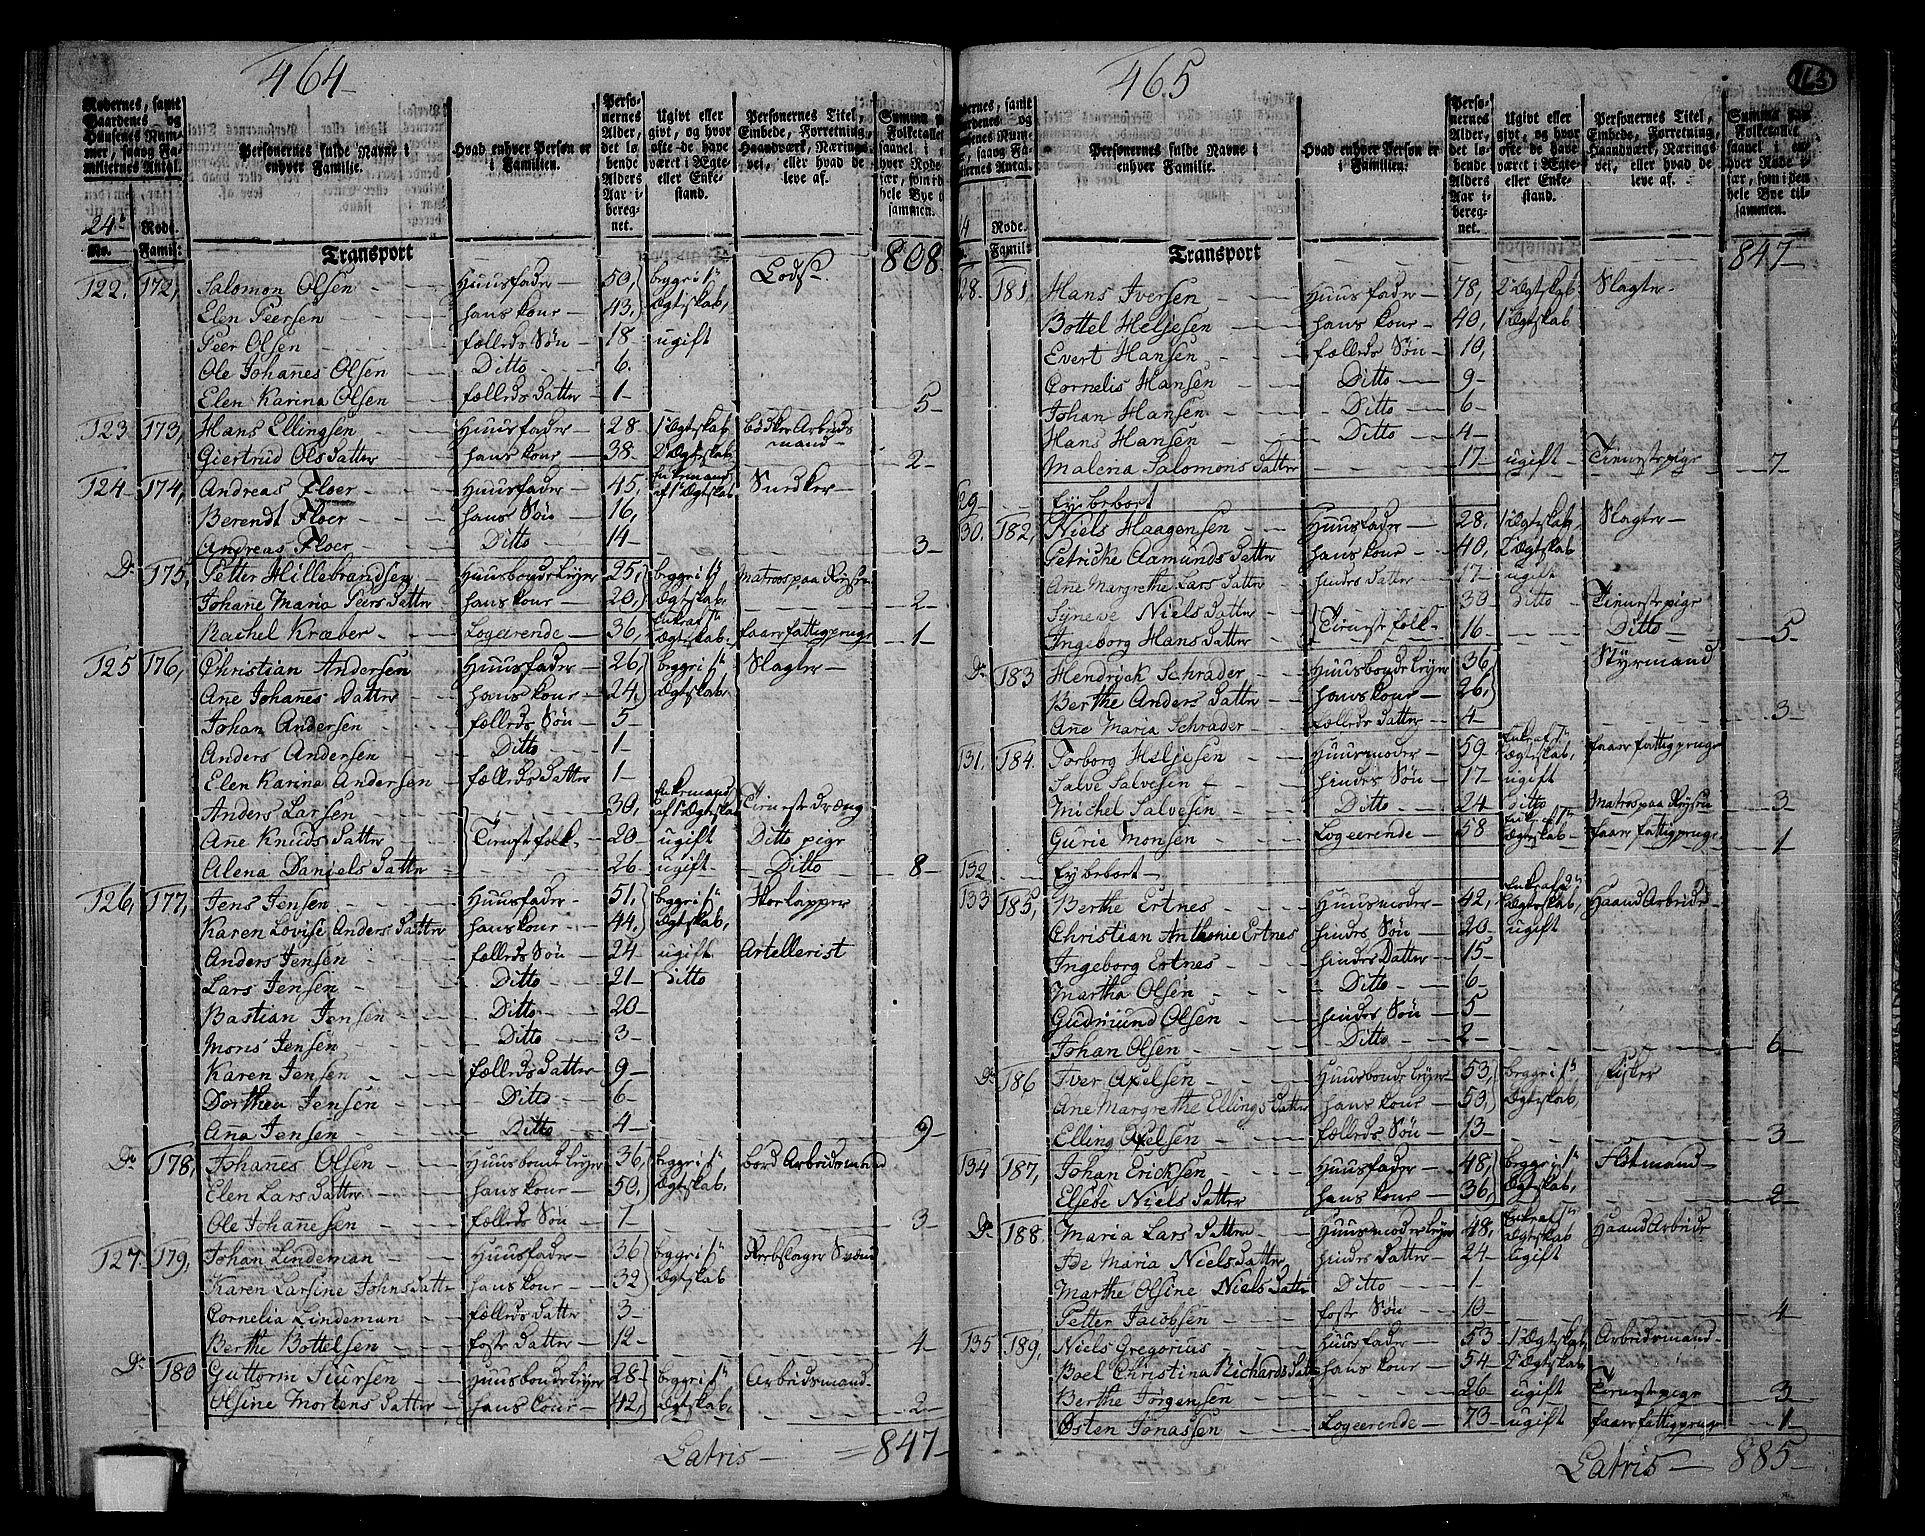 464
Rodernes, samt Gaardenes og Huusenes Nummer, saavog Familiernes Antal.
Personernes fulde Navne i enhver Familie.
Hvad enhver Person er i Familien.
Personernes Alder, det løbende Alders Aar iberegnet.
Ugivt eller givt, og hvor ofte de have været i Ægte- eller Enkestand.
Personernes Titel, Embede, Forretning, Haandværk, Næringsvei, eller hvad de leve af.
24de Rode.
No. Famil:
Transport 808
122. 172, Salomon Olsen Huusfader 50, begge i 1te Ægteskab, Lods
Elen Peersen hans kone 43,
Peer Olsen fælleds Søn 18 ugift
Ole Johanes Olsen Ditto 6.
Elen Karina Olsen fælleds Datter 1 5
123 173, Hans Ellingsen Huusfader 28 1 Ægteskab Bødker Arbeidsmand
Giertrud Ols Datter hans kone 38 2 Ægteskab 2
124 174, Andreas Floer Huusfader 45, Enkemand af 1te Ægteskab Snedker
Berendt Floer hans Søn 16,
Andreas Floer Ditto 14 3
Do 175, Petter Hillebrandsen Huusbonde Leyer 25, begge i 1te Ægteskab, Matros paa Reyser
Johane Maria Peers Datter hans kone 20, 2
Rachel Kræber Logeerende 36, Enke af 1te Ægteskab, faaer fattigpenge 1
125 176, Christian Andersen Huusfader 26, begge i 1te Ægteskab, Slagter
Ane Johanes Datter hans kone 24,
Johan Andersen fælleds Søn 5
Anders Andersen Ditto 1
Elen Karina Andersen fælleds Datter 1
Anders Larsen 30, Enkemand af 1te Ægteskab Tienestedreng
Ane Knuds Datter Tienestefolk 20 ugift Ditto pige
Alena Daniels Datter 26 ugift Ditto 8
126, 177, Jens Jensen Huusfader 51, begge i 1te Ægteskab, Skoelapper
Karen Lovise Anders Datter hans kone 44,
Anders Jensen fælleds Søn 24 ugift Artellerist
Lars Jensen Ditto 21 Ditto
Bastian Jensen Ditto 20
Mons Jensen Ditto 3
Karen Jensen fælleds Datter 9
Dorthea Jensen Ditto 6
Ana Jensen Ditto 4 9
Do 178, Johanes Olsen Huusbonde Leyer 36, begge i 1te Ægteskab, bord Arbeidsmand
Elen Lars Datter hans kone 50,
Ole Johanesen fælleds Søn 7 3
127. 179, Johan Lindeman Huusfader 36 begge i 1te Ægteskab Reebslager Svend
Karen Larsine Johns Datter hans kone 32
Cornelia Lindeman fælleds Datter 3
Berthe Bottelsen foster Datter 12 4
Do 180 Guttorm Siursen Huusbonde Leyer 28 begge i 1te Ægteskab, Arbeidsmand
Olsine Mortens Datter hans Cone 42, 2
Latris = 847
465
163
Personernes fulde Navne i enhver Familie.
Hvad enhver Person er i Familien.
Personernes Alder, det løbende Alders Aar iberegnet.
Ugivt eller givt, og hvor ofte de have været i Ægte- eller Enkestand.
Personernes Titel, Embede, Forretning, Haandværk, Næringsvei, eller hvad de leve af.
Summa paa Folketallet saavel i enhver Rode især, som i den hele Bye tilsammen.
4 Rode.
Famil:
Transport 847
28. 181, Hans Iversen Huusfader 78, 2 Ægteskab Slagter
Bottel Helgesen hans kone 40, 1 Ægteskab
Evert Hansen fælleds Søn 10,
Cornelis Hansen Ditto 9
Johan Hansen Ditto 6
Hans Hansen Ditto 4
Malena Salomons Datter 17 ugift Tienestepige 7
29 Ey beboet
30. 182, Niels Haagensen Huusfader 28, 1 Ægteskab, Slagter
Petricke Aamunds Datter hans kone 40, 2 Ægteskab
Ane Margrethe Lars Datter hindes Datter 17 ugift
Syneve Niels Datter Tienestefolk 30 Ditto Tienestepige
Ingeborg Hans Datter 16 Ditto 5
Do 183 Hendrick Schrader Huusbonde Leyer 36 Styrmand
Berthe Anders Datter hans kone 26,
Ane Maria Schrader fælleds Datter 4 3
131. 184. Torborg Helgesen Huusmoder 59 Enke af 1te Ægteskab, faaer fattigpenge
Salve Salvesen hindes Søn 17 ugift
Michel Salvesen Ditto 24 Ditto Matros paa Reyser 3
Gurie Monsen Logeerende 58 Enke af 1te Ægteskab faaer fattigpenge 1
132 Ey beboet
133 185, Berthe Ertnes Huusmoder 42, Enke af 2de Ægteskab, Haand Arbeide
Christian Anthonie Ertnes hindes Søn 20 ugift
Ingeborg Ertnes hindes Datter 15
Martha Olsen Ditto 6
Gudmund Olsen hindes Søn 5
Johan Olsen Ditto 2 6
Do 186 Iver Axelsen Huusbonde Leyer 53, begge i 1te Ægteskab, Fisker
Ane Margrethe Ellings Datter hans kone 50,
Elling Axelsen fælleds Søn 13 3
134 187, Johan Ericksen Huusfader 48, begge i 1te Ægteskab, Flotmand
Elsebe Niels Datter hans kone 36, 2
Do 188. Maria Lars Datter Huusmoder Leyer 48, Enke af 1te Ægteskab Haand Arbeide
Ide Maria Niels Datter hindes Datter 24 ugift
Marthe Olsine Niels Datter Ditto 1
Petter Jacobsen foster Søn 10 4
135 189, Niels Gregorius Huusfader 53 1 Ægteskab, Arbeidsmand
Boel Christina Richards Datter hans kone 54 2 Ægteskab,
Berthe Jørgensen 26 ugift Tienestepige 3
Østen Jonassen Logeerende 73 ugift faaer fattigpenge 1
Latris 885